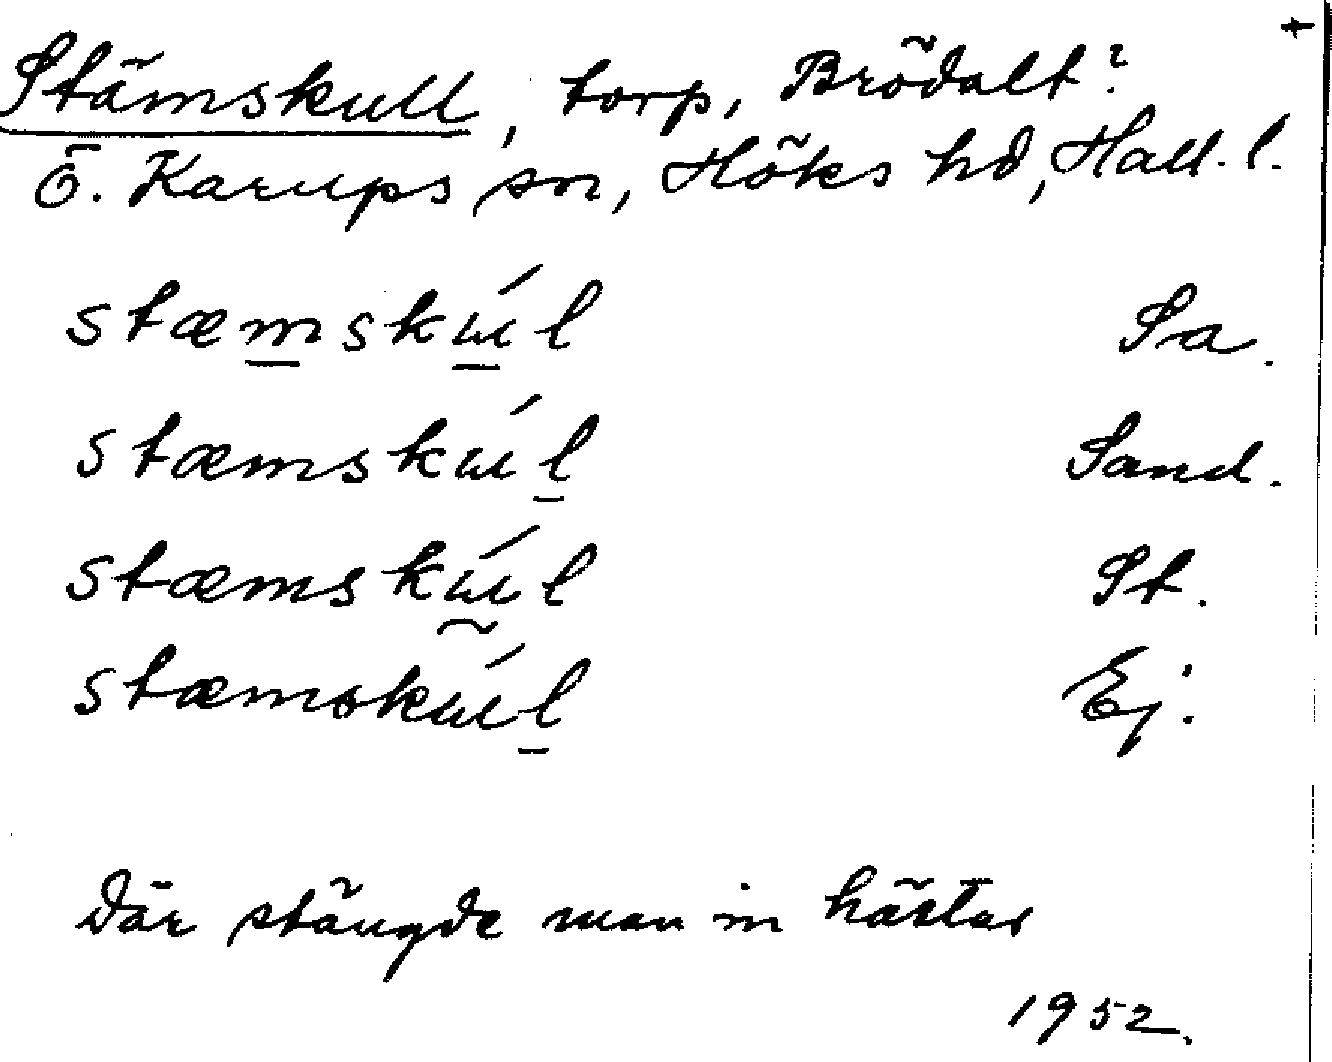 †
Stämskull, torp, Brödalt?
Ö. Karups sn, Höks hd, Hall. l.
stæmskúl Sa.
stæmskúl Sand.
stæmskúl St.
stæmskúl Ej.
Där stängde man in hästar
1952.